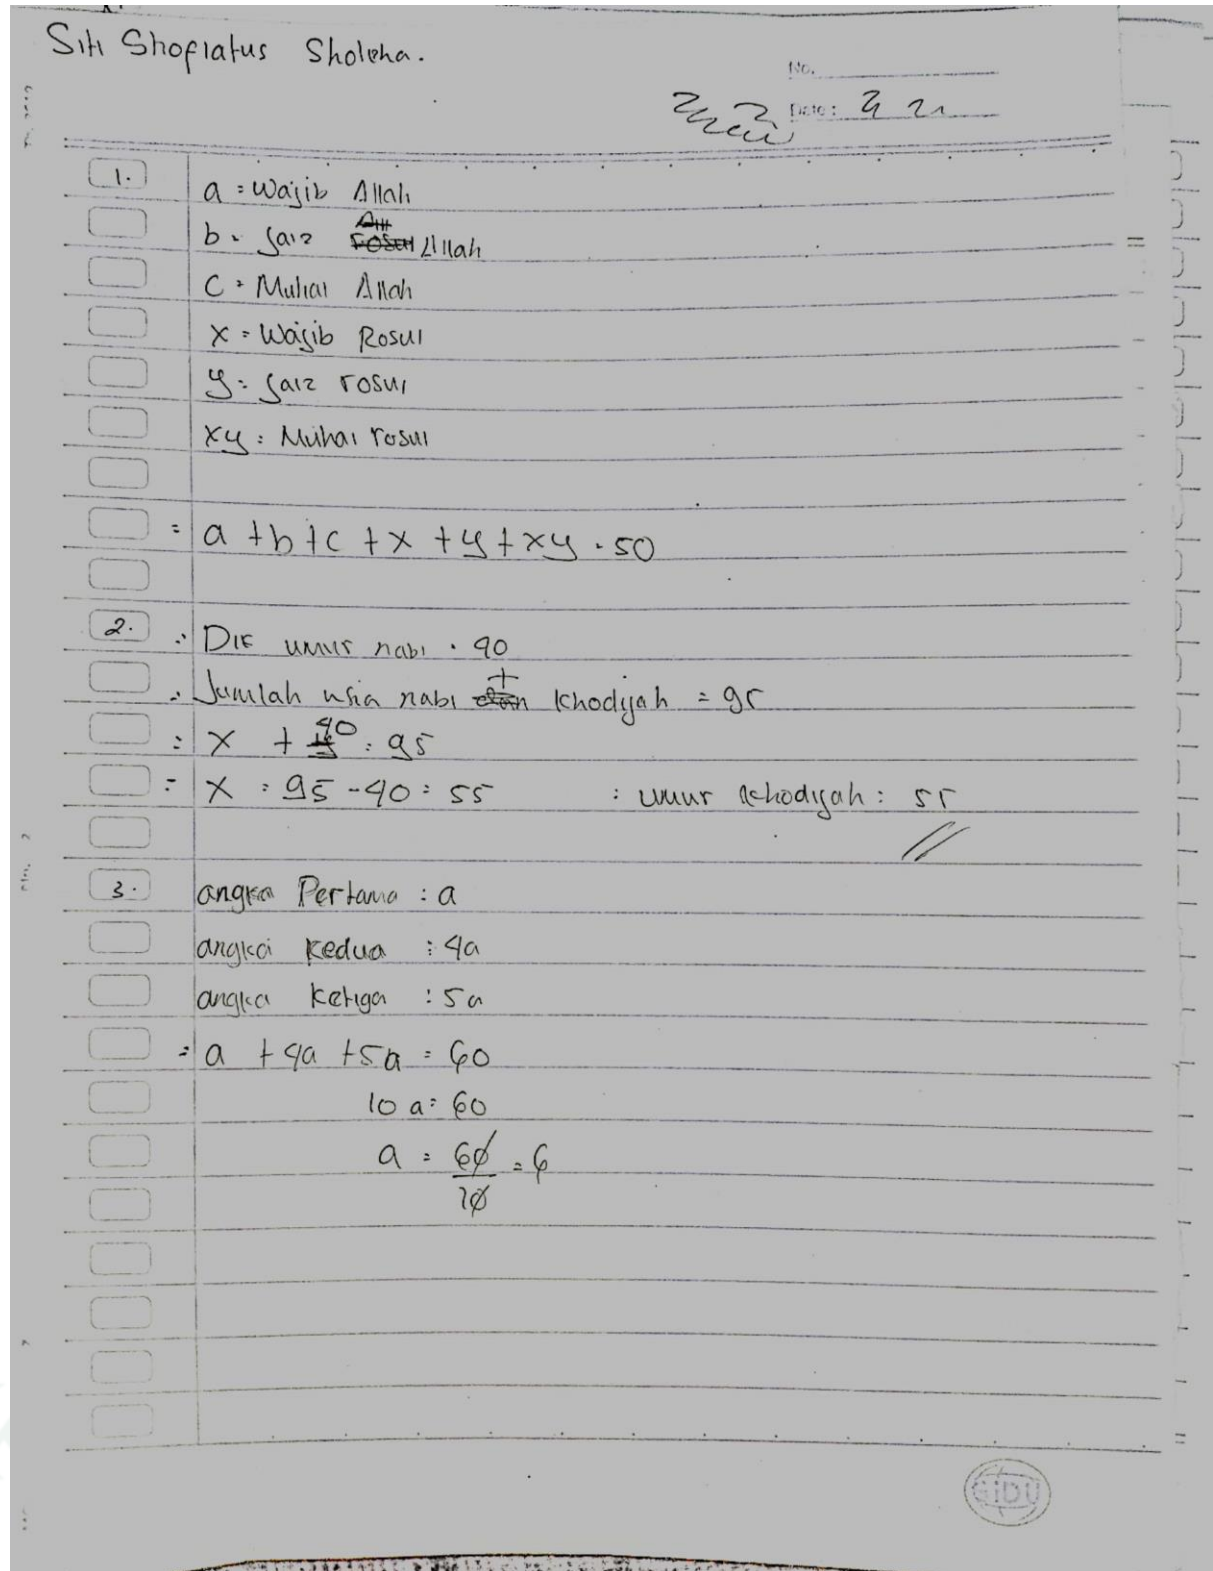 Siti Shofiatus Sholeha.
No.
Date:
1. a = Wajib Allah
b = Jaiz Allah
C = Muhal Allah
X = Wajib Rosul
y = Jaiz rosul
xy = Muhal rosul
= a + b + c + x + y + xy = 50
2. Dik umur nabi = 40
Jumlah usia nabi + Khodijah = 95
= X + 40 = 95
= X = 95 - 40 = 55 : umur khodijah = 55
3. angka Pertama : a
angka Kedua : 4a
angka Ketiga : 5a
= a + 4a + 5a = 60
10 a = 60
a = 60/10 = 6
GIDU